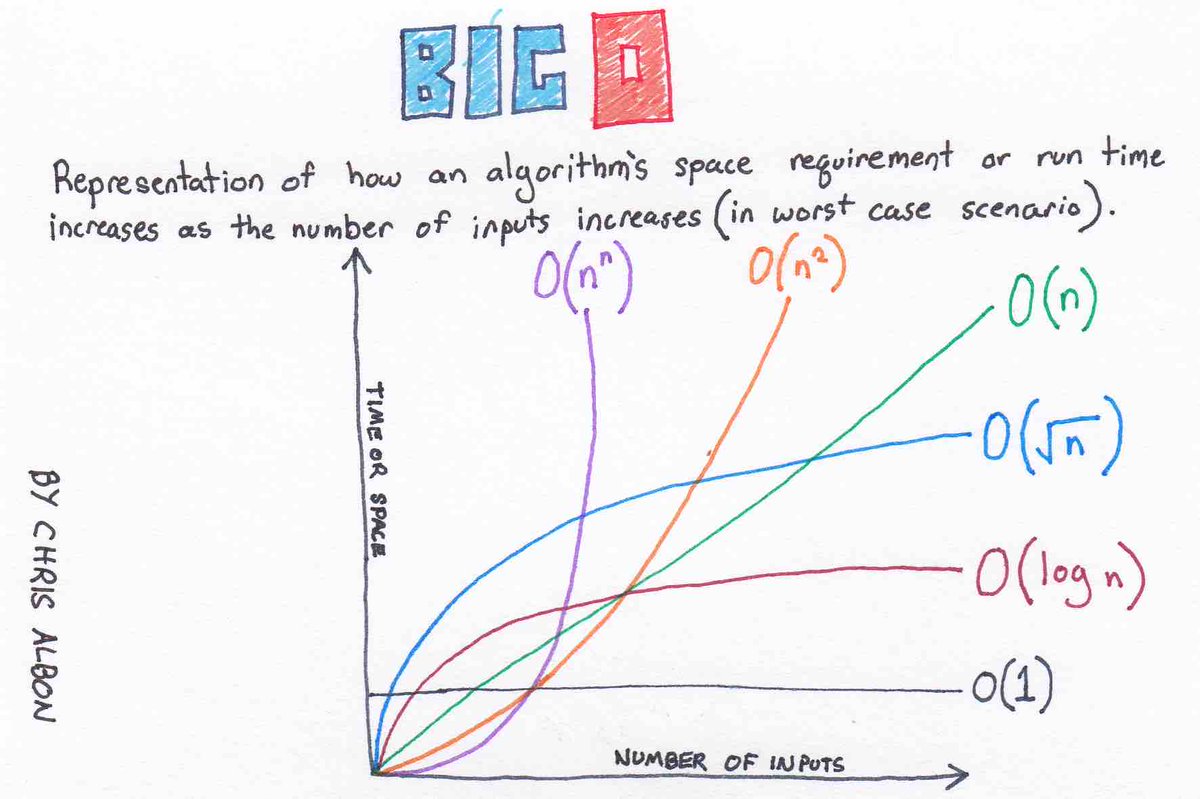 BIG O
Representation of how an algorithm's space requirement or run time
increases as the number of inputs increases (in worst case scenario).
O(nⁿ)
O(n²)
O(n)
O(√n)
O(log n)
O(1)
TIME OR SPACE
NUMBER OF INPUTS
BY CHRIS ALBON